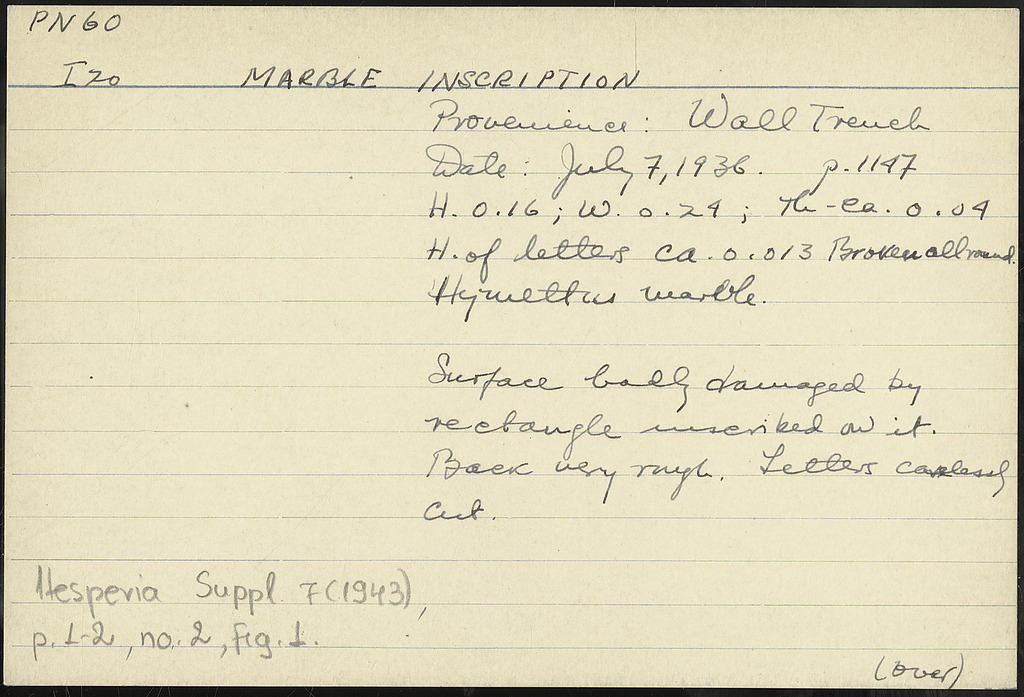 PN60
I 20 MARBLE INSCRIPTION
Provenience: Wall Trench
Date: July 7, 1936. p. 1147
H. 0.16; W. 0.24; Th-ca. 0.04
H. of letters ca. 0.013 Broken all round.
Hymettus marble.
Surface badly damaged by
rectangle inscribed on it.
Back very rough. Letters carelessly
cut.
Hesperia Suppl. 7 (1943),
p. 1-2, no. 2, fig. 1.
(over)